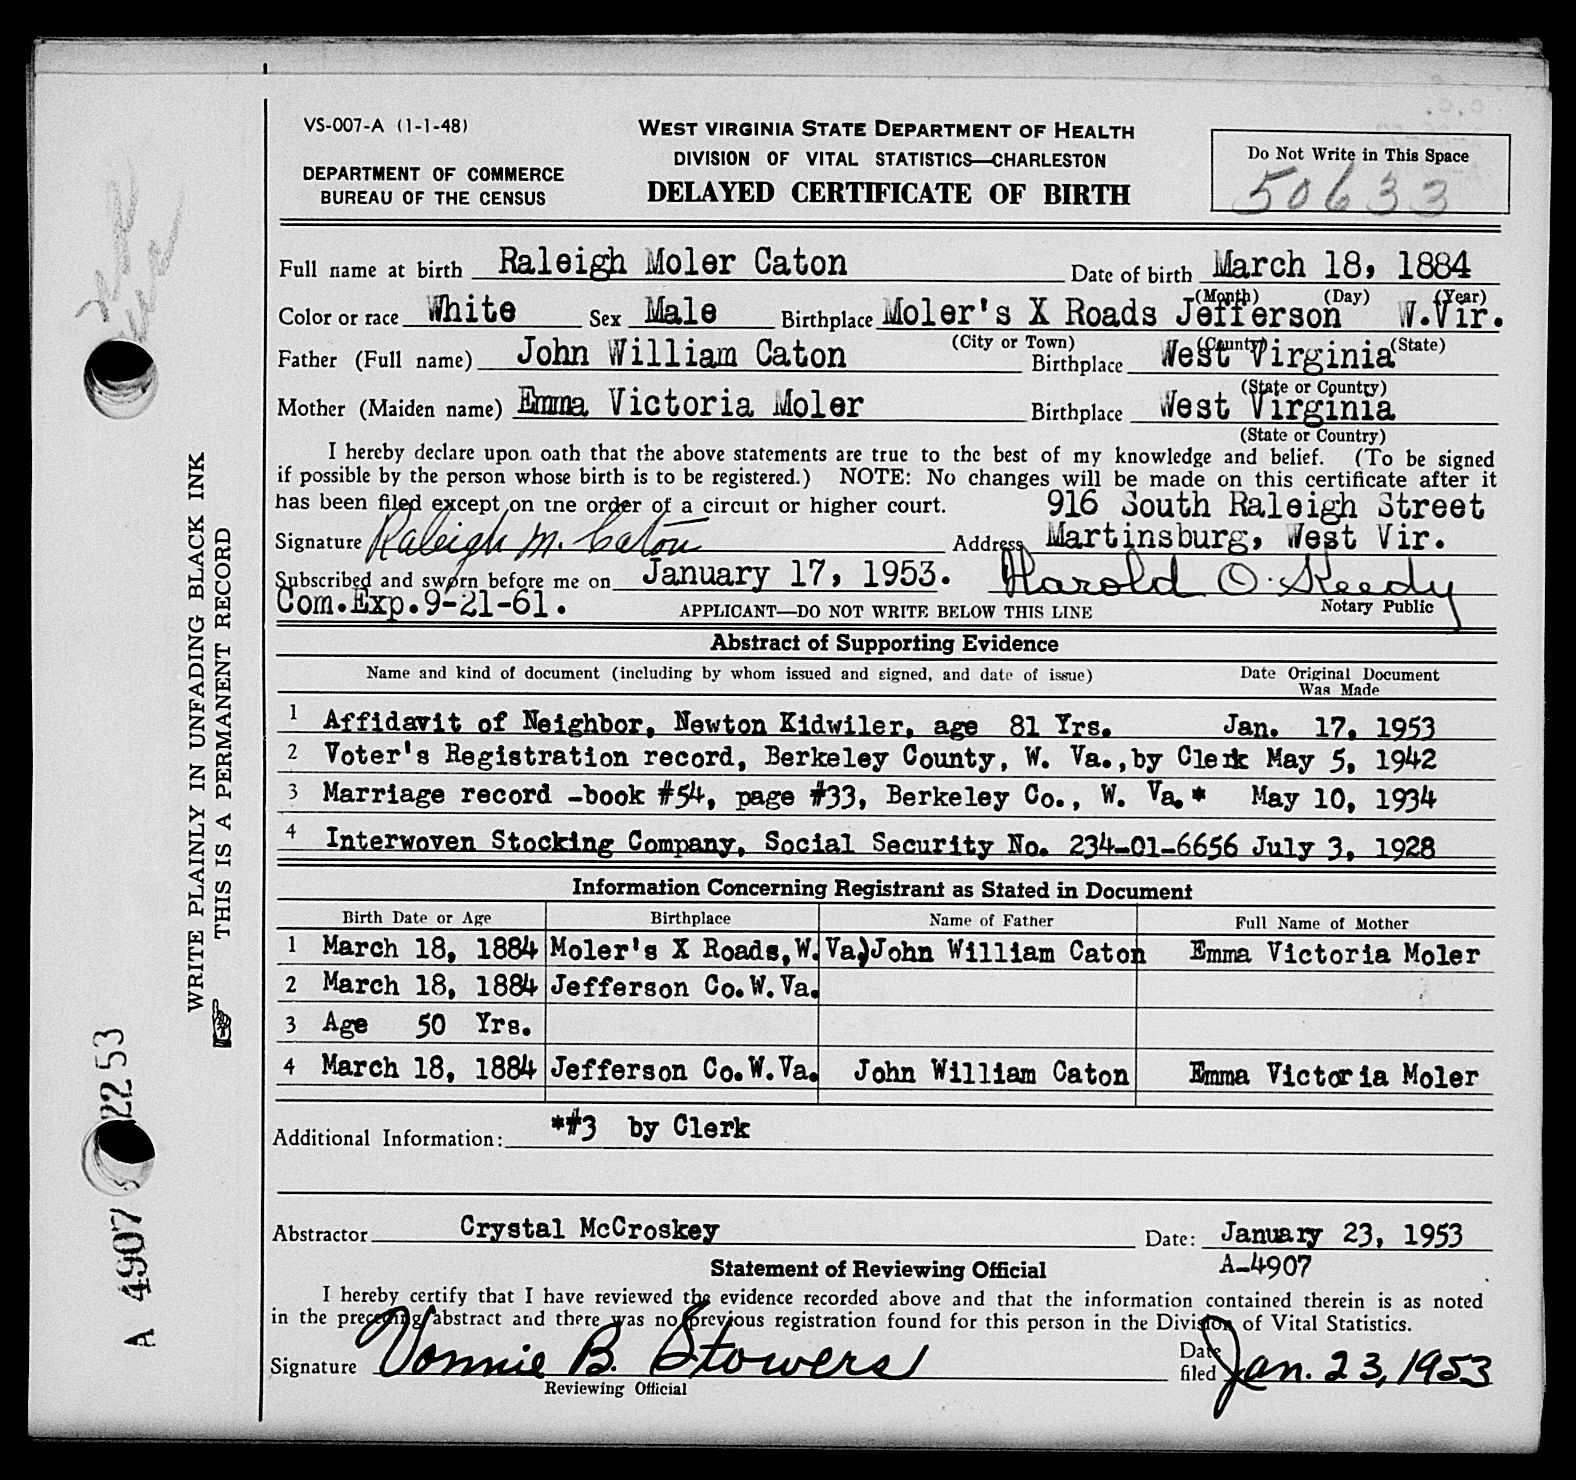 VS-007-A (1-1-48)
WEST VIRGINIA STATE DEPARTMENT OF HEALTH
DIVISION OF VITAL STATISTICS—CHARLESTON
DELAYED CERTIFICATE OF BIRTH
DEPARTMENT OF COMMERCE
BUREAU OF THE CENSUS
Do Not Write in This Space
50633
Full name at birth Raleigh Moler Caton Date of birth March 18, 1884
(Month) (Day) (Year)
Color or race White Sex Male Birthplace Moler's X Roads Jefferson W.Vir.
(City or Town) (County) (State)
Father (Full name) John William Caton Birthplace West Virginia
(State or Country)
Mother (Maiden name) Emma Victoria Moler Birthplace West Virginia
(State or Country)
I hereby declare upon oath that the above statements are true to the best of my knowledge and belief. (To be signed
if possible by the person whose birth is to be registered.) NOTE: No changes will be made on this certificate after it
has been filed except on the order of a circuit or higher court. 916 South Raleigh Street
Signature Raleigh M. Caton Address Martinsburg, West Vir.
Subscribed and sworn before me on January 17, 1953. Harold O. Keedy
Com.Exp.9-21-61. APPLICANT—DO NOT WRITE BELOW THIS LINE Notary Public
Abstract of Supporting Evidence
Name and kind of document (including by whom issued and signed, and date of issue) Date Original Document
Was Made
1 Affidavit of Neighbor, Newton Kidwiler, age 81 Yrs. Jan. 17, 1953
2 Voter's Registration record, Berkeley County, W. Va.,by Clerk May 5, 1942
3 Marriage record -book #54, page #33, Berkeley Co., W. Va.* May 10, 1934
4 Interwoven Stocking Company, Social Security No. 234-01-6656 July 3, 1928
Information Concerning Registrant as Stated in Document
Birth Date or Age Birthplace Name of Father Full Name of Mother
1 March 18, 1884 Moler's X Roads,W.Va.) John William Caton Emma Victoria Moler
2 March 18, 1884 Jefferson Co.W.Va.
3 Age 50 Yrs.
4 March 18, 1884 Jefferson Co.W.Va. John William Caton Emma Victoria Moler
Additional Information: *#3 by Clerk
Abstractor Crystal McCroskey Date: January 23, 1953
Statement of Reviewing Official A-4907
I hereby certify that I have reviewed the evidence recorded above and that the information contained therein is as noted
in the preceding abstract and there was no previous registration found for this person in the Division of Vital Statistics.
Signature Vonnie B. Stowers Date
filed Jan. 23, 1953
Reviewing Official
WRITE PLAINLY IN UNFADING BLACK INK
THIS IS A PERMANENT RECORD
A 4907 22 53